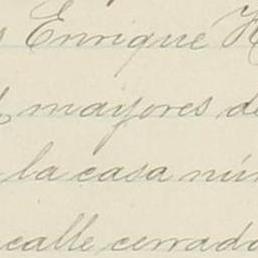 Enrique
mayores de
la casa núm
calle cerrado